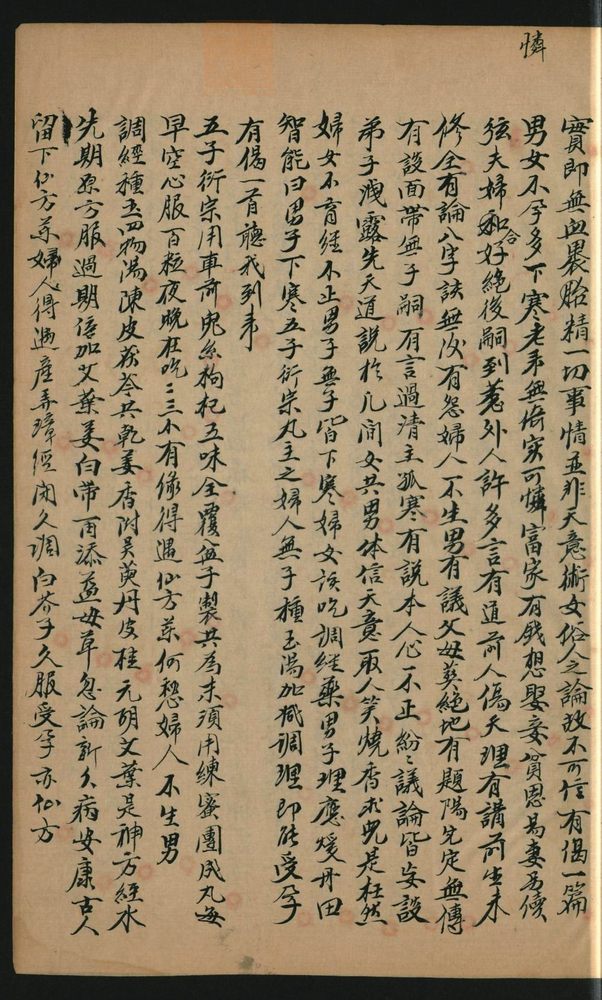 憐
實即無血裹胎精一切事情並非天意術女俗人之論故不可信有偈一篇
男女不孕多下寒老來無倚實可憐富家有錢想娶妾貧恩為妻另續
弦夫婦和合好絕後嗣到惹外人許多言有道前人傷天理有講前生未
修全有論八字該無後有怨婦人不生男有議父母葬絕地有題陽宅無傳
有設面帶無子嗣有言過清主孤寒有說本人心不正紛紛議論皆妄設
弟子洩露先天道說於凡間女共男休信天意取人笑燒香求兒是枉然
婦女不育經不止男子無子皆下寒婦女該吃調經藥男子理應煖丹田
智能曰男子下寒五子衍宗丸主之婦人無子種玉湯加減調理即能受孕
有偈一首聽我到來
五子衍宗用車前兔絲枸杞五味全覆盆子製共為末須用練蜜團成丸每
早空心服百粒夜晚在吃二三小有緣得遇仙方藥何愁婦人不生男
調經種玉四物湯陳皮茯苓共乾姜香附吳萸丹皮桂元胡艾葉是神方經水
先期原方服過期倍加艾葉姜白帶再添益母草忽論新久病安康古人
留下仙方藥婦人得遇產弄璋經閉久調白芥子久服受孕亦仙方